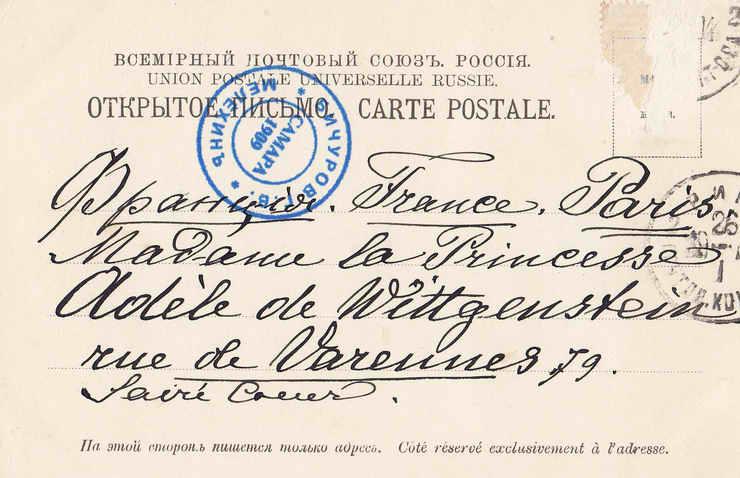 ВСЕМІРНЫЙ ПОЧТОВЫЙ СОЮЗЪ. РОССІЯ.
UNION POSTALE UNIVERSELLE RUSSIE.
ОТКРЫТОЕ ПИСЬМО. CARTE POSTALE.
МЕЛЕХИНЪ * БИЧУРОВЪ *
САМАРА
1909
Франція. France. Paris
Madame la Princesse
Adèle de Wittgenstein
rue de Varennes 79.
Sacré Coeur.
На этой сторонѣ пишется только адресъ. Côté réservé exclusivement à l'adresse.